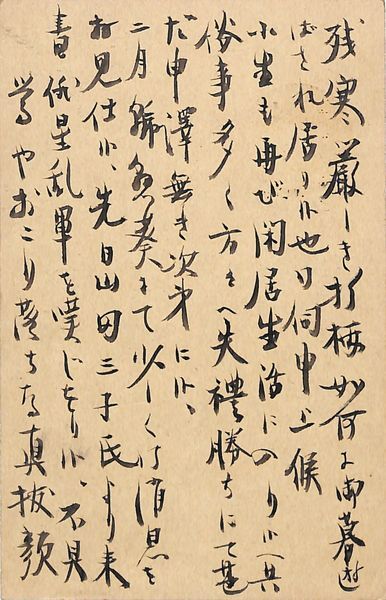 残寒厳しき折柄如何に御暮遊
ばされ居り候也日伺申上候
小生も再び閑居生活に入り候へ共
俗事多く方々へ失禮勝ちにて甚
だ申譯無き次第に候、
二月号演奏にて少しく御消息を
お見仕候、先日山田三子氏より来
書俳星乱軍を嘆じをり候、不具
鶯やおこり落ちたる真拔顔